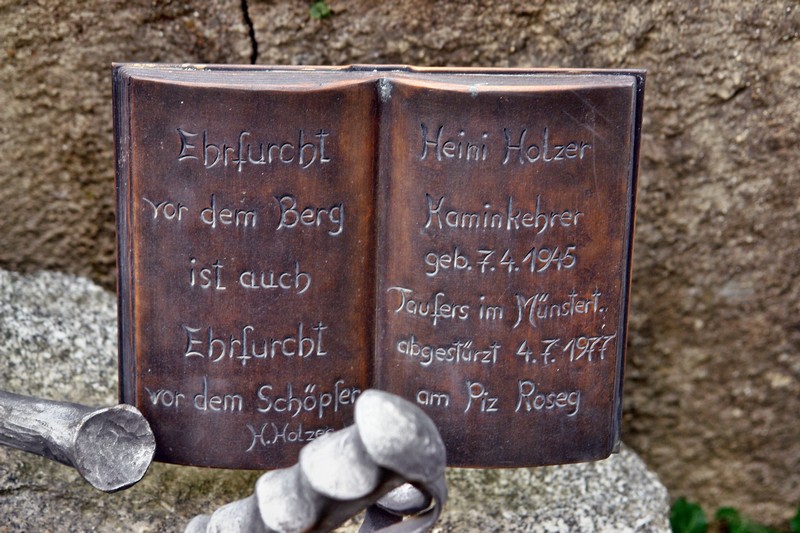 Ehrfurcht
vor dem Berg
ist auch
Ehrfurcht
vor dem Schöpfer
H. Holzer
Heini Holzer
Kaminkehrer
geb. 7.4.1945
Taufers im Münstert.
abgestürzt 4.7.1977
am Piz Roseg